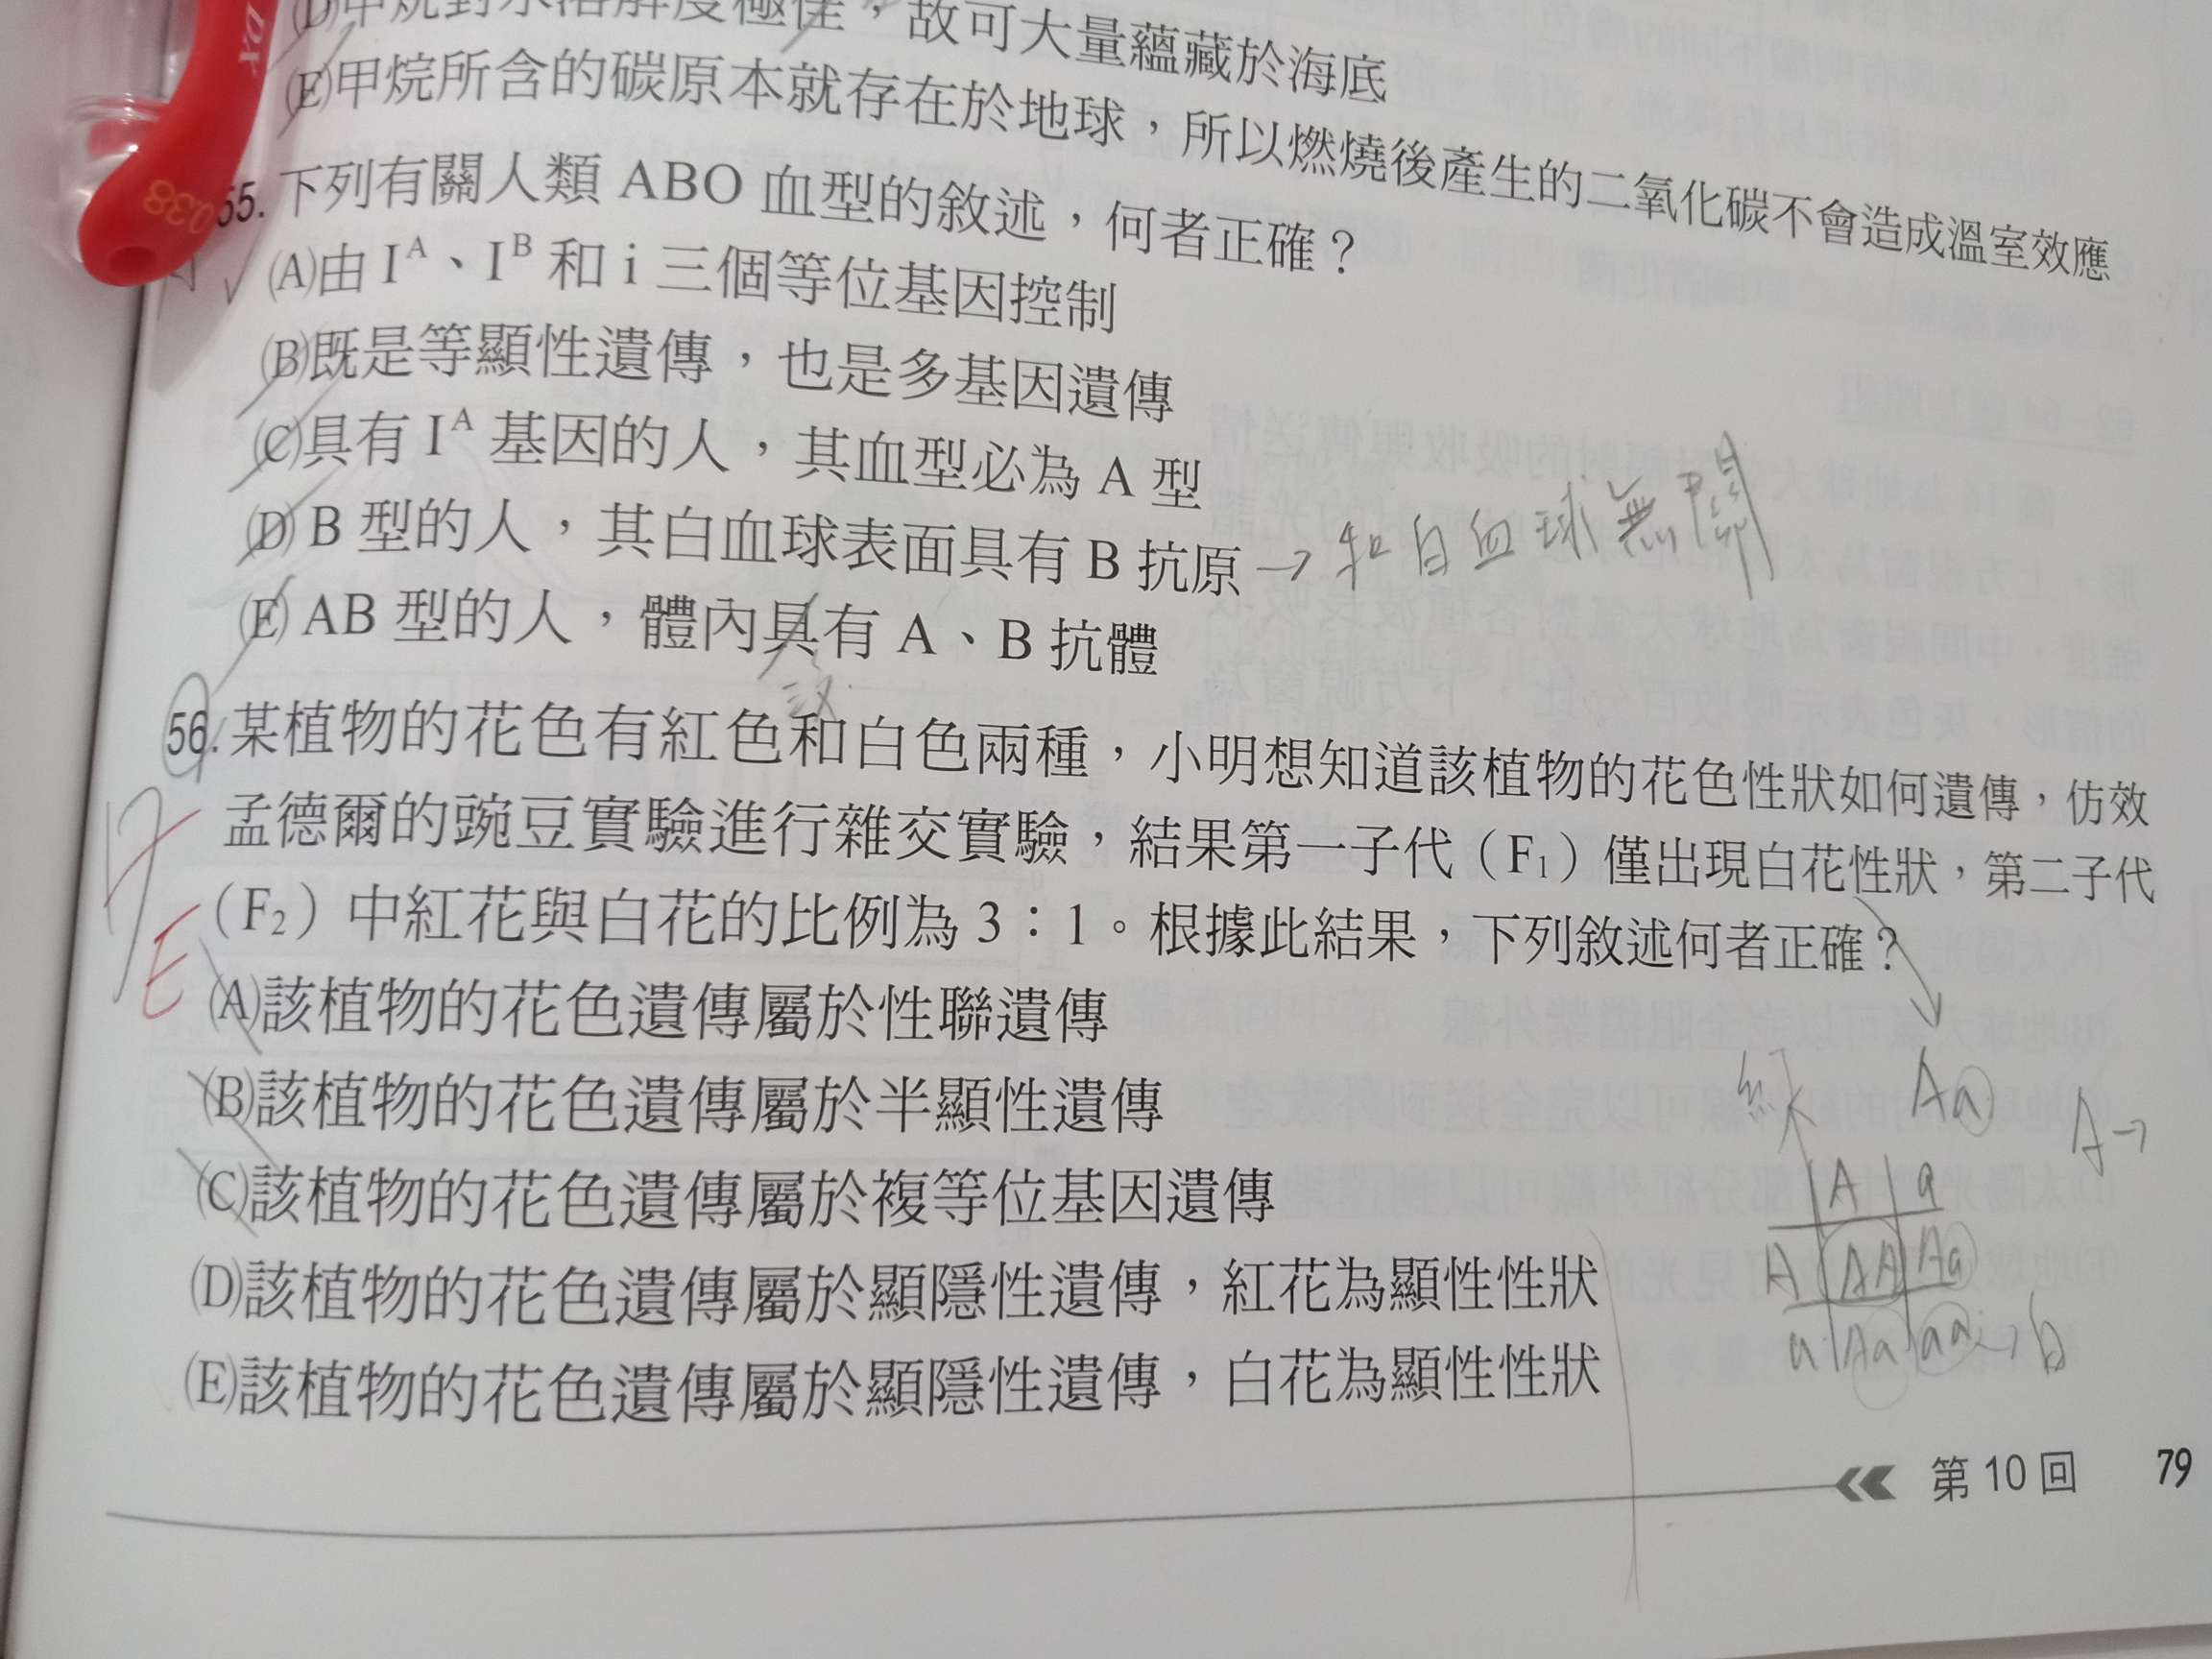 (D)甲烷對水溶解度極佳，故可大量蘊藏於海底
(E)甲烷所含的碳原本就存在於地球，所以燃燒後產生的二氧化碳不會造成溫室效應
DX
0.38
55. 下列有關人類 ABO 血型的敘述，何者正確？
(A)由 I^A、I^B 和 i 三個等位基因控制
(B)既是等顯性遺傳，也是多基因遺傳
(C)具有 I^A 基因的人，其血型必為 A 型
(D) B 型的人，其白血球表面具有 B 抗原→和白血球無關
(E) AB 型的人，體內具有 A、B 抗體
沒
56. 某植物的花色有紅色和白色兩種，小明想知道該植物的花色性狀如何遺傳，仿效
孟德爾的豌豆實驗進行雜交實驗，結果第一子代（F₁）僅出現白花性狀，第二子代
（F₂）中紅花與白花的比例為 3：1。根據此結果，下列敘述何者正確？
E
(A)該植物的花色遺傳屬於性聯遺傳
(B)該植物的花色遺傳屬於半顯性遺傳
(C)該植物的花色遺傳屬於複等位基因遺傳
(D)該植物的花色遺傳屬於顯隱性遺傳，紅花為顯性性狀
(E)該植物的花色遺傳屬於顯隱性遺傳，白花為顯性性狀
Aa
A→
A a
A AA Aa
a Aa aa
第 10 回 79